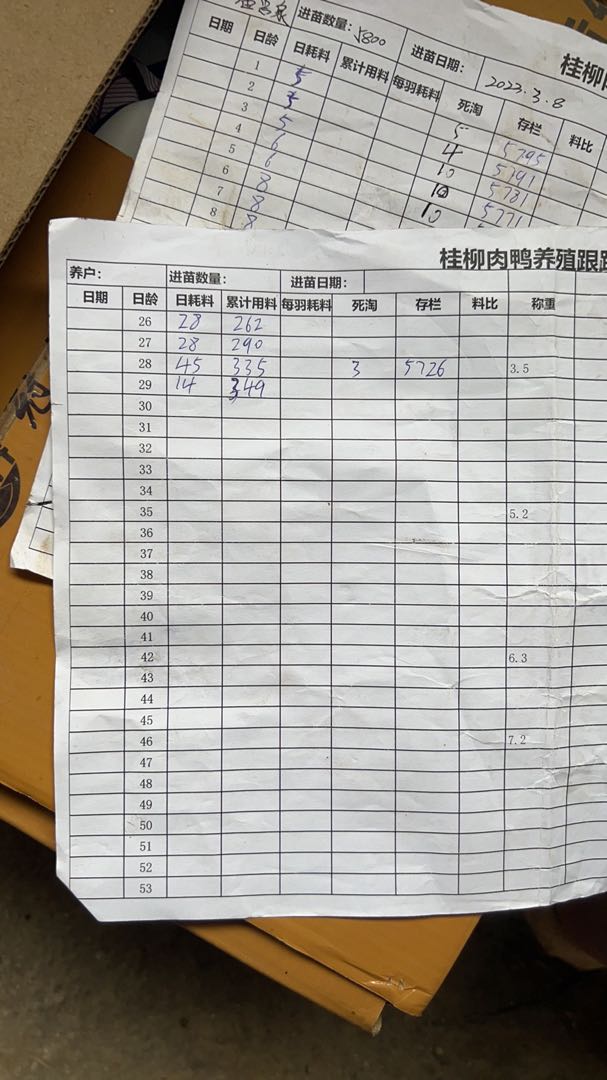 进苗数量: 5800 进苗日期: 2022.3.8 桂柳
日期 日龄 日耗料 累计用料 每羽耗料 死淘 存栏 料比
1 5 5 5795
2 5 4 5791
3 5 10 5781
4 6 10 5771
5 6 10
6 8
7 8
8 8
桂柳肉鸭养殖跟踪
养户: 进苗数量: 进苗日期:
日期 日龄 日耗料 累计用料 每羽耗料 死淘 存栏 料比 称重
26 28 262
27 28 290
28 45 335 3 5726 3.5
29 14 349
30
31
32
33
34
35 5.2
36
37
38
39
40
41
42 6.3
43
44
45
46 7.2
47
48
49
50
51
52
53